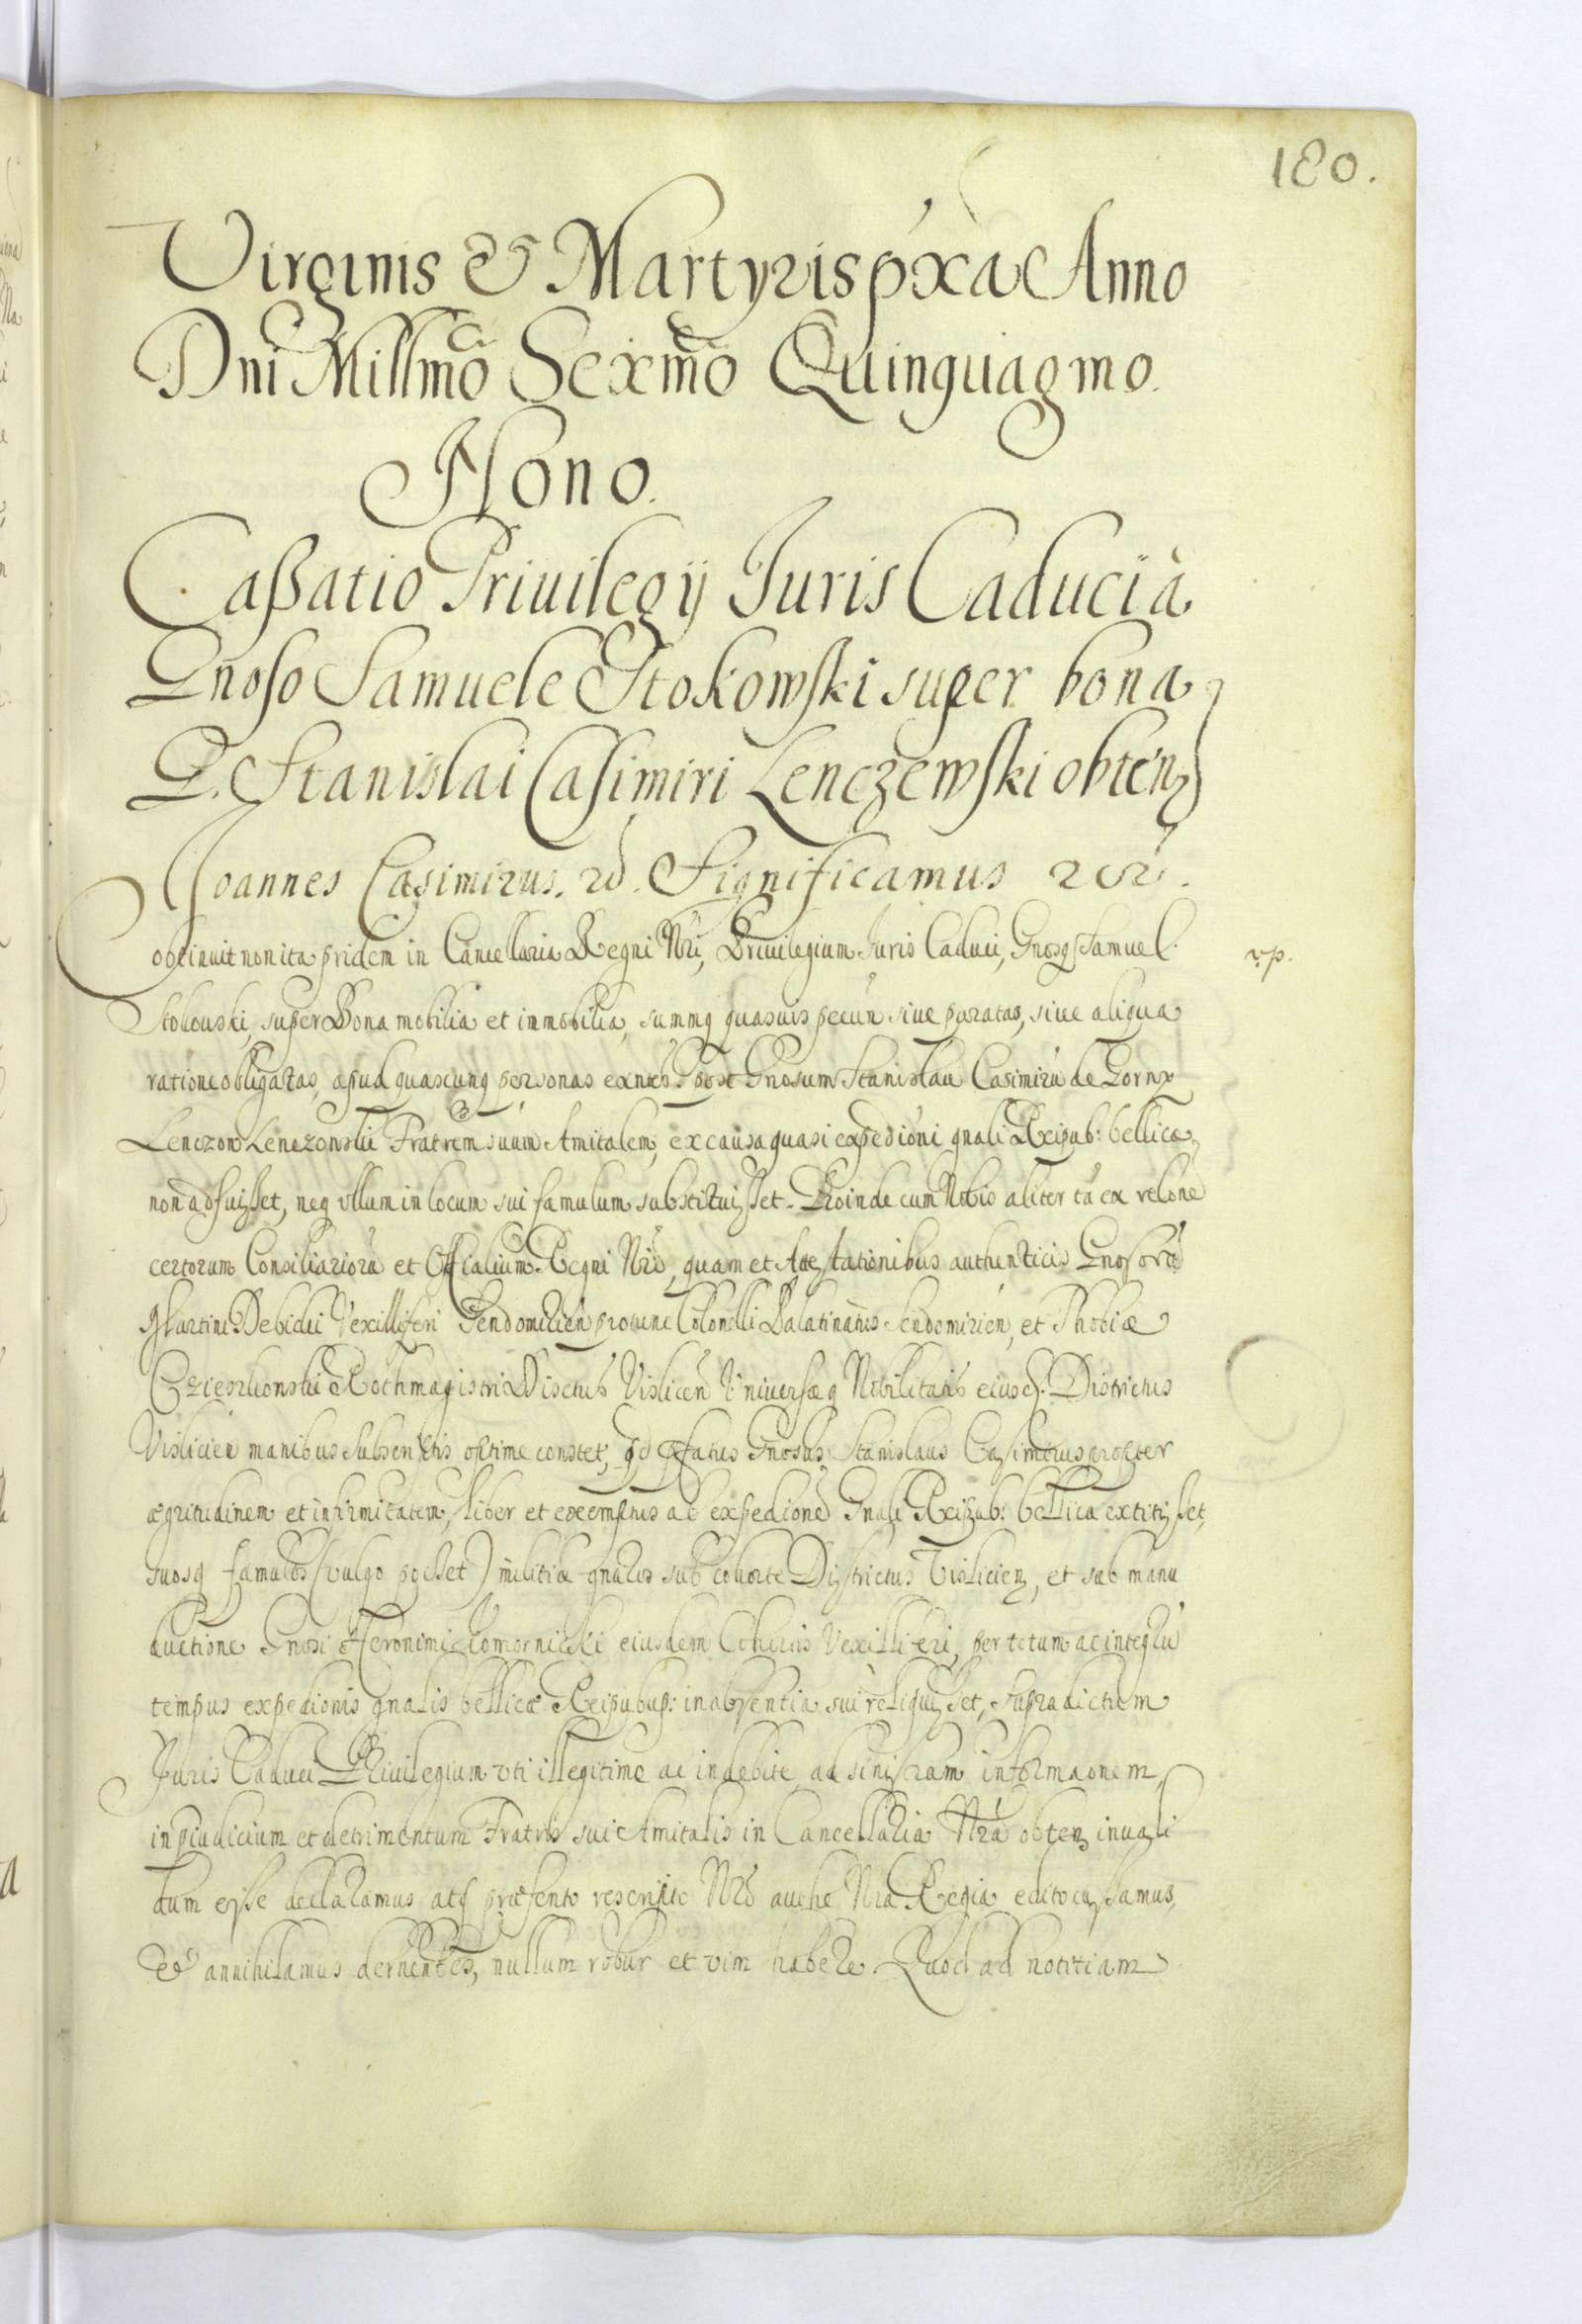 180.
Virginis & Martyris pxa Anno
Dni Millmo Sexmo Quinquagmo
Nono.
Caßatio Priuilegij Iuris Caduci à
Gnoso Samuele Stokowski super bona
G. Stanislai Casimiri Lenczewski obten
Joannes Casimirus. Significamus
obtinuit non ita pridem in Cancellaria Regni Nri, Priuilegium Iuris Caduci, Gnosq Samuel
Stokouski, super Bona mobilia et immobilia, summq quasuis pecun siue paratas, siue aliqua
ratione obligatas, apud quascunq personas post Gnosum Stanislau Casimiru de Gorny
Lenczow Lenczowski Fratrem suum Amitalem, ex causa quasi expedioni gnali Reipub: bellicæ
non adfuisset, neq vllum in locum sui famulum substituisset. Proinde cum Nobis aliter tã ex relone
certorum Consiliariorũ et Officialium Regni Nri, quam et Attestationibus authenticis Gnosorũ
Martini Debicki Vexilliferi Sendomirien protunc Colonelli Palatinatus Sendomirien, et Thobiæ
Rothmagistri Disctus Vislicen Vniuersæq Nobilitatis eiusd. Districtus
Vislicien manibus subscriptis optime constet, qd pfatus Gnosus Stanislaus Casimirus propter
ægritudinem et infirmitatem, liber et exemptus ab expedione Gnali Reipub: bellica extitisset,
suosq famulos (vulgo poczet) militiæ gnalis sub cohorte Districtus Vislicien, et sub manu
ductione Gnosi Heronimi eiusdem Cohortis Vexilliferi, per totum ac integrũ
tempus expedionis gnalis bellicæ Reipub: in absentia sui reliquisset, supradictum
Iuris Caduci Priuilegium vti illegitime ac indebite ad sinistram informaonem
in piudicium et detrimentum Fratris sui Amitalis in Cancellaria Nra obten inuali
dum esse declaramus atq præsenti rescripto Nro authe Nra Regia edito cassamus,
& annihilamus dernentes, nullum robur et vim habere. Quod ad notitiam